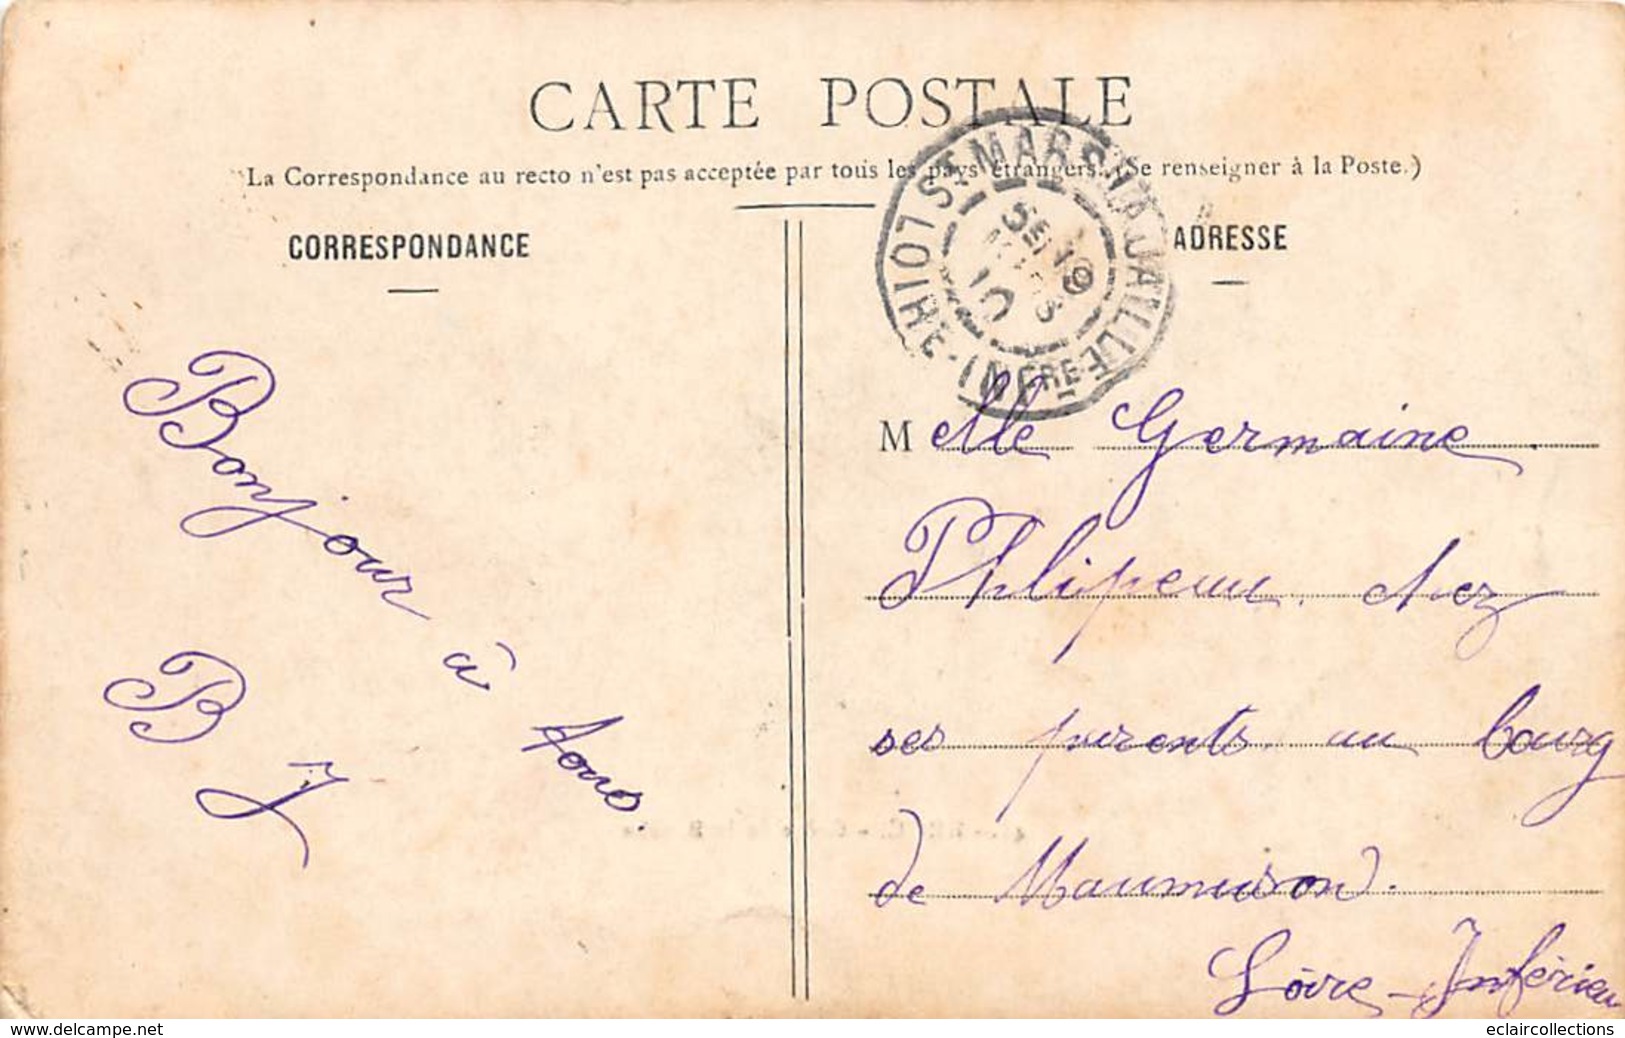 CARTE POSTALE
La Correspondance au recto n'est pas acceptée par tous les pays étrangers. (Se renseigner à la Poste.)
CORRESPONDANCE
ADRESSE
ST MARS-LA-JAILLE
LOIRE-INFRE
Bonjour à tous.
B J
Melle Germaine
Phlipeau chez
ses parents au bourg
de Maumusson.
Loire-Inférieu
delcampe.net
eclaircollections